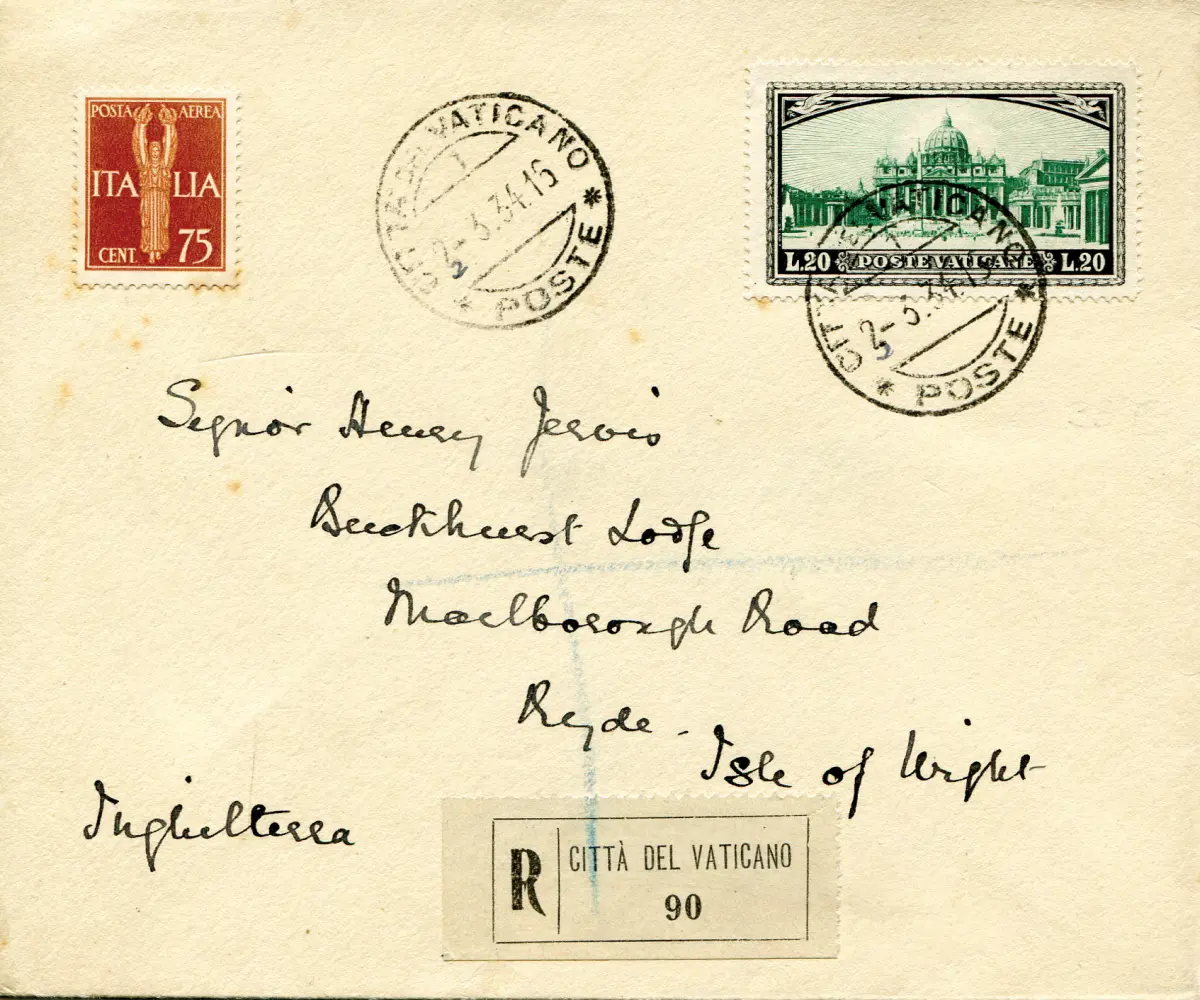 POSTA AEREA
ITALIA
CENT. 75
CITTÀ DEL VATICANO
1
2-3.34.15
* POSTE *
L.20 POSTE VATICANE L.20
CITTÀ DEL VATICANO
1
2-3.34.15
* POSTE *
Signor Henry Jervis
Buckhurst Lodge
Marlborough Road
Ryde - Isle of Wight
Inghilterra
R CITTÀ DEL VATICANO
90